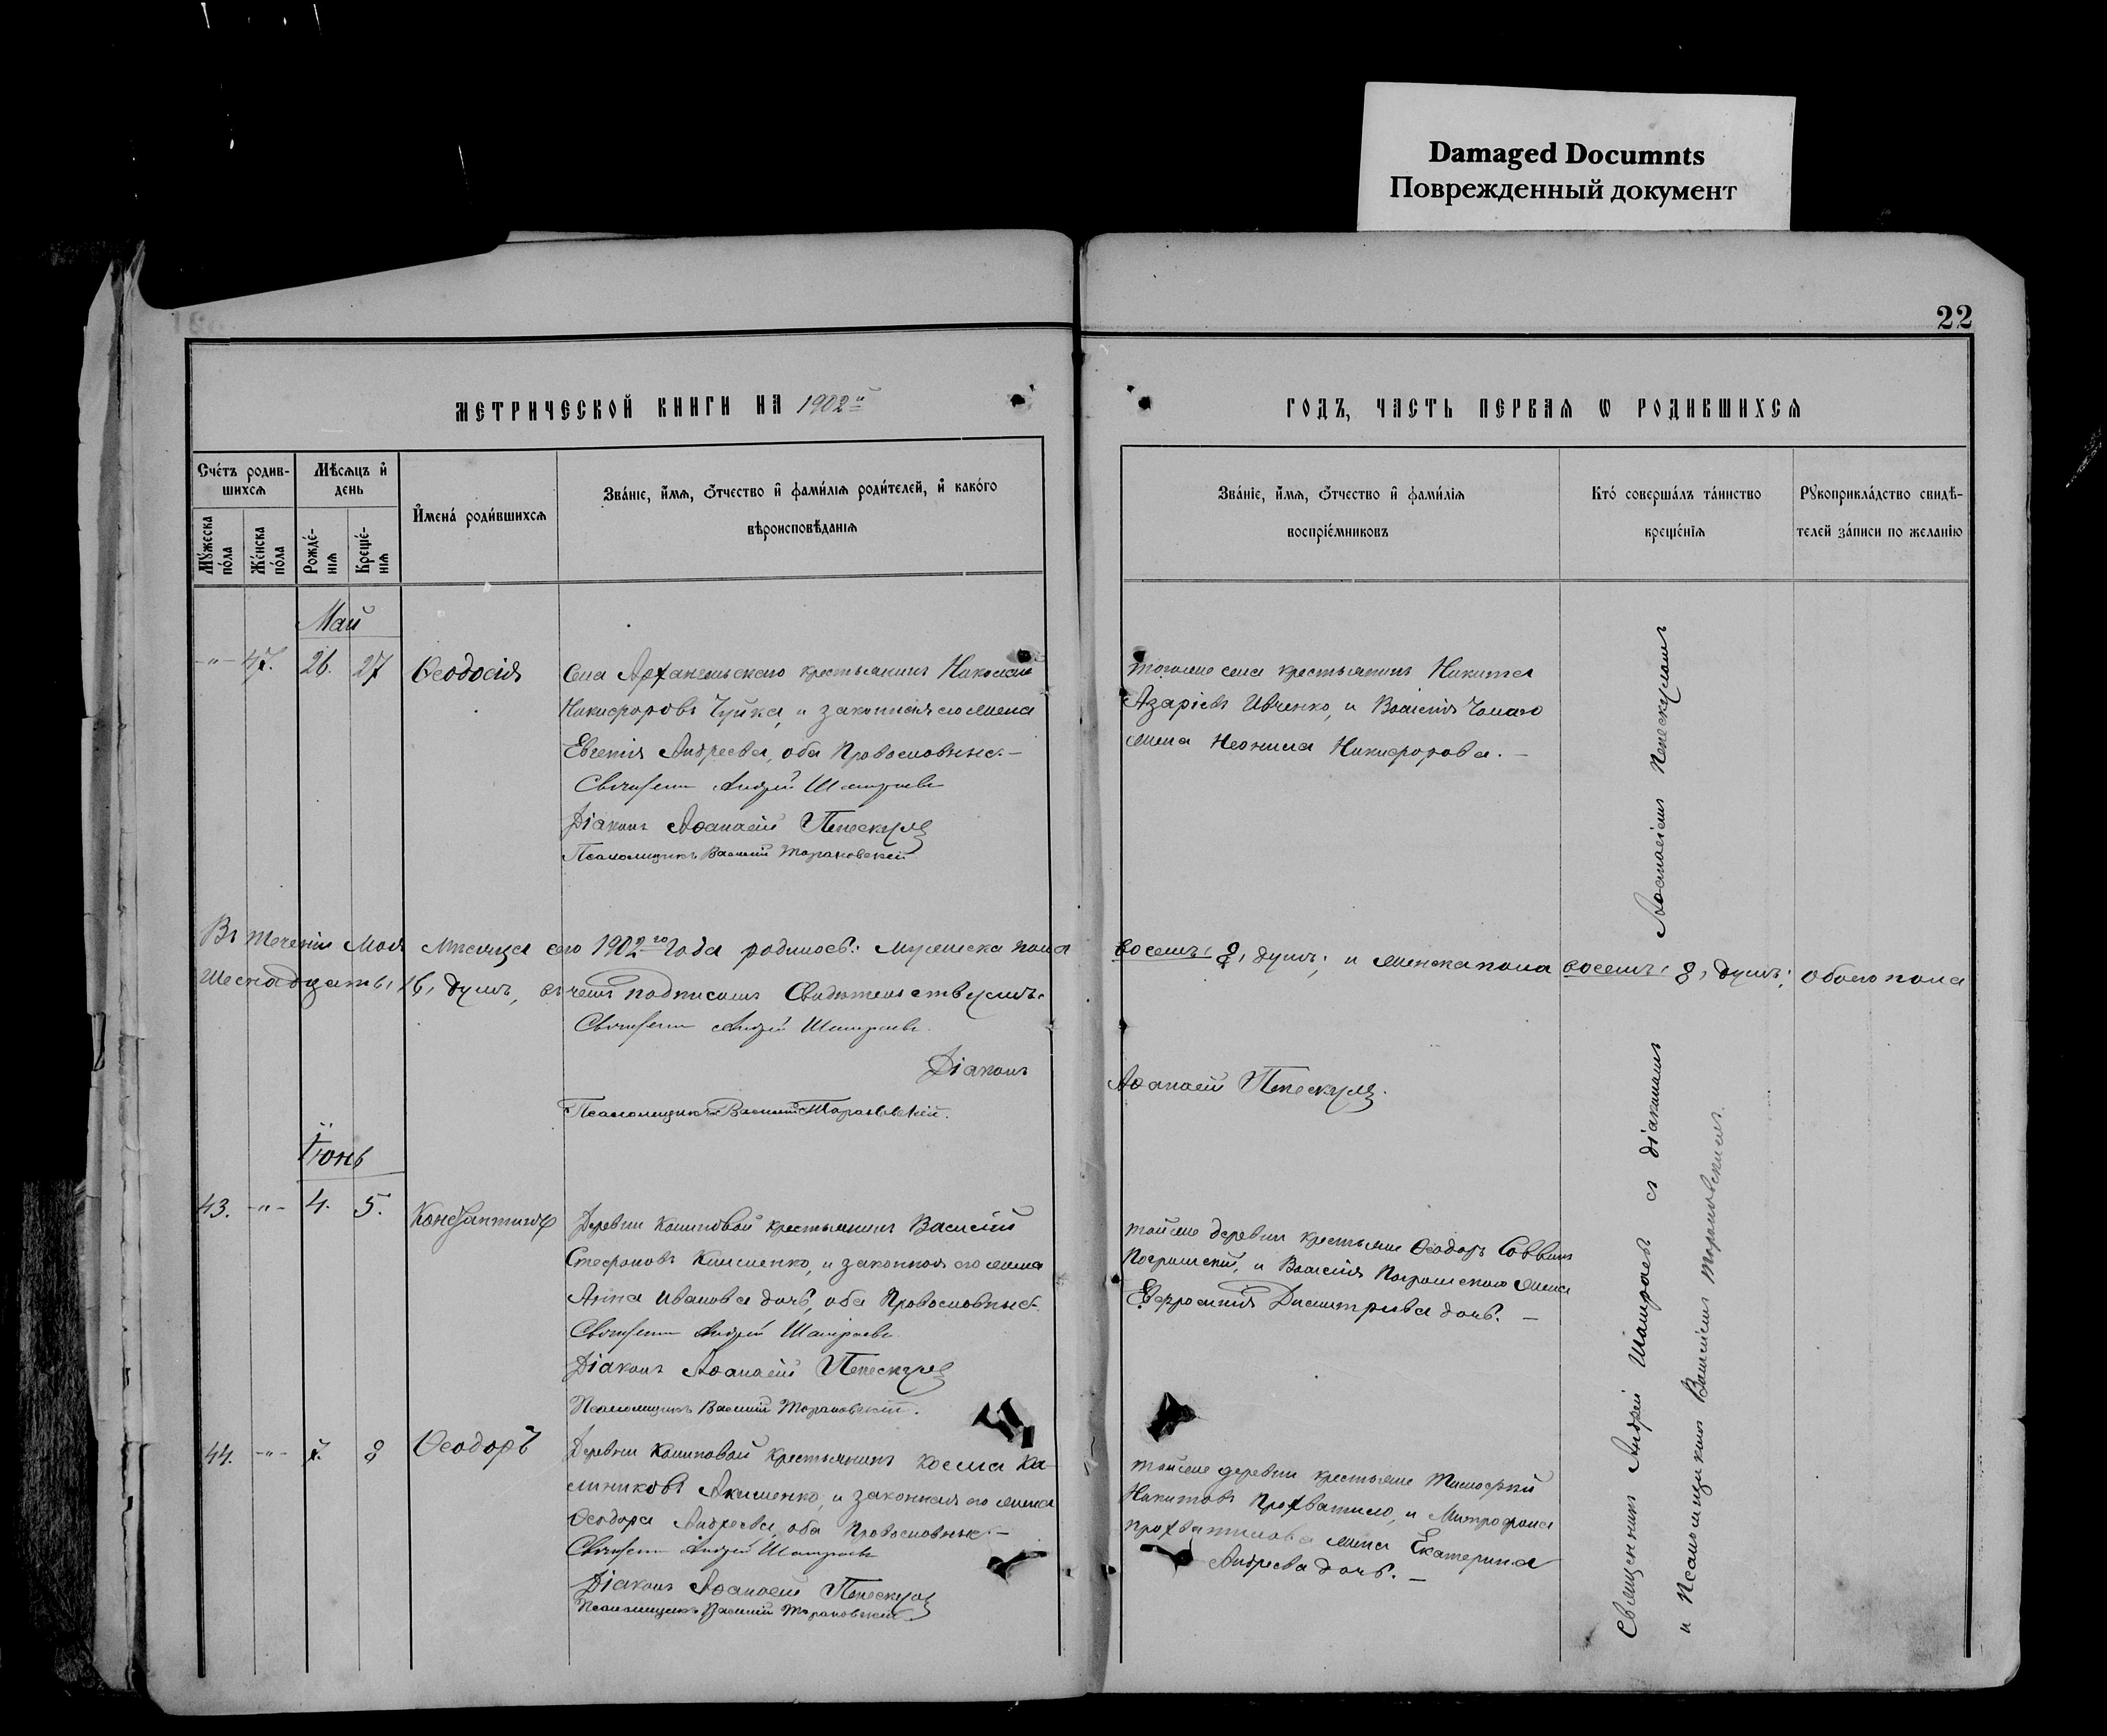 Damaged Documnts
Поврежденный документ
22
МЕТРИЧЕСКОЙ КНИГИ НА 1902й
ГОДЪ, ЧАСТЬ ПЕРВАЯ Ѡ РОДИВШИХСЯ
Счетъ родив-
шихся
Мѣсяцъ и
день
Мужеска
пола
Женска
пола
Рожде-
нія
Креще-
нія
Имена родившихся
Званіе, имя, отчество и фамилія родителей, и какого
вѣроисповѣданія
Званіе, имя, отчество и фамилія
воспріемниковъ
Кто совершалъ таинство
крещенія
Рукоприкладство свидѣ-
телей записи по желанію
Май
-"- 47. 26. 27 Ѳеодосія
Села Архангельскаго крестьянинъ Николай
Никифоровъ Чуйка, и законная его жена
Евгенія Андреева, оба Православные.-
Священникъ Андрей
Діаконъ Аѳанасій Пепескулъ
Псаломщикъ Василій Тарановскій
тогоже села крестьянинъ Никита
Азаріевъ Ивченко, и Василія
жена Неонила Никифорова. -
Въ теченіи Мая мѣсяца сего 1902го года родилось: мужеска пола восемь, 8, душъ; и женска пола восемь, 8, душъ; обоего пола
Шеснадцать, 16, душъ, въ чемъ подписомъ Свидѣтельствуемъ.
Священникъ Андрей
Діаконъ Аѳанасій Пепескулъ.
Псаломщикъ Василій Тарановскій.
Іюнь
43. -"- 4. 5. Константинъ
Деревни крестьянинъ Василій
Стефановъ Клименко, и законная его жена
Анна Иванова дочь, оба Православные.
Священникъ Андрей
Діаконъ Аѳанасій Пепескулъ
Псаломщикъ Василій Тарановскій.
тойже деревни крестьяне Ѳеодоръ Саввинъ
и Василія жена
Евфросинія Димитріева дочь. -
44. -"- 7. 8 Ѳеодоръ
Деревни крестьянинъ Косма Ка-
линиковъ Акименко, и законная его жена
Ѳеодора Андреева, оба Православные.-
Священникъ Андрей
Діаконъ Аѳанасій Пепескулъ
Псаломщикъ Василій Тарановскій
тойже деревни крестьяне Тимофей
Никитовъ Прохватило, и Митрофана
Прохватилова жена Екатерина
Андреева дочь. -
Священникъ Андрей съ діакономъ Аѳанасіемъ Пепескуломъ
и Псаломщикомъ Василіемъ Тарановскимъ.